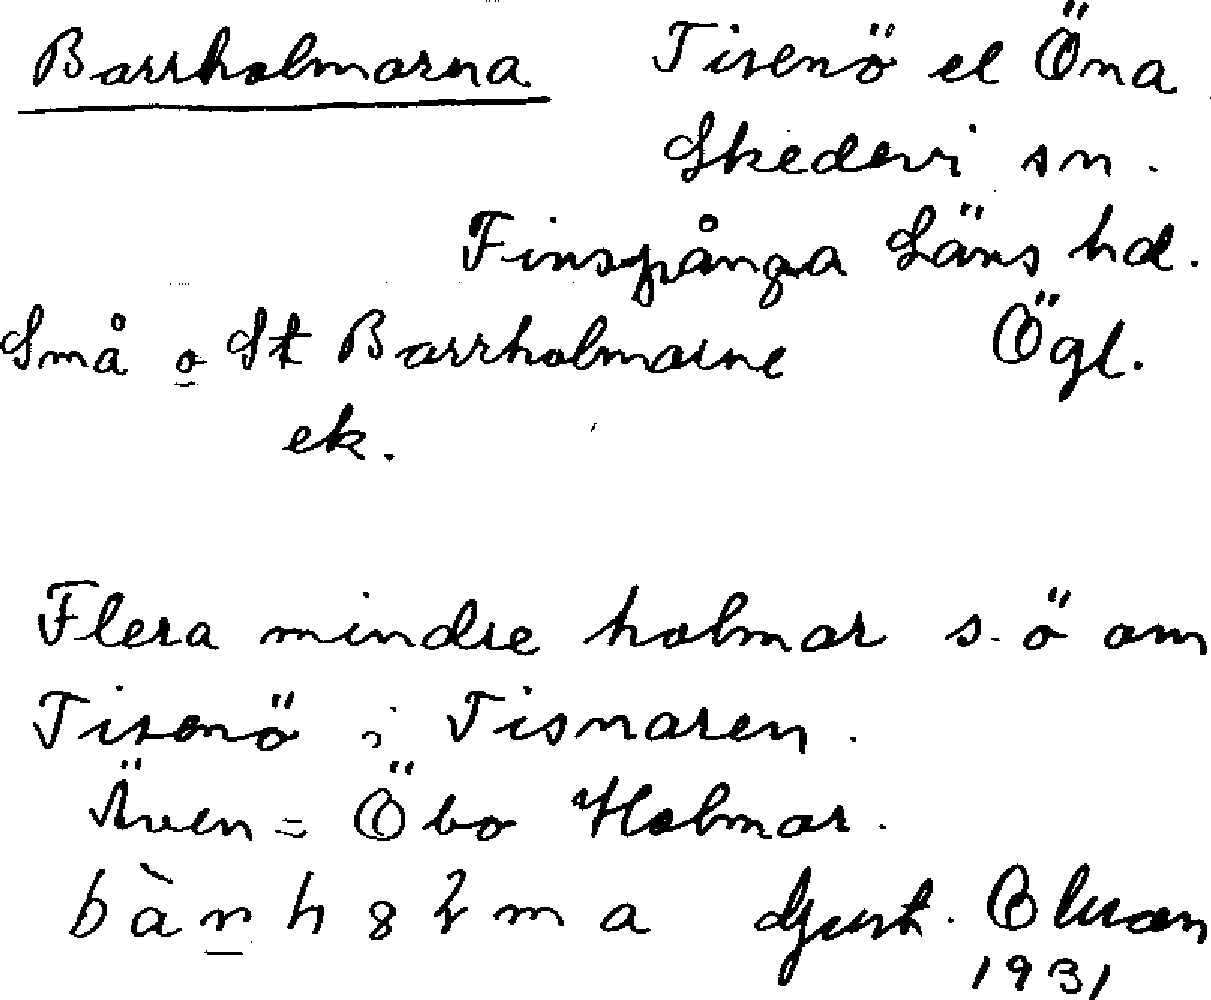 Barrholmarna Tisenö el Öna
Skedevi sn.
Finspånga Läns hd.
Små o St Barrholmarne Ögl.
ek.
Flera mindre holmar s. ö om
Tisenö i Tisnaren.
Även = Öbo Holmar.
Gust.
1931